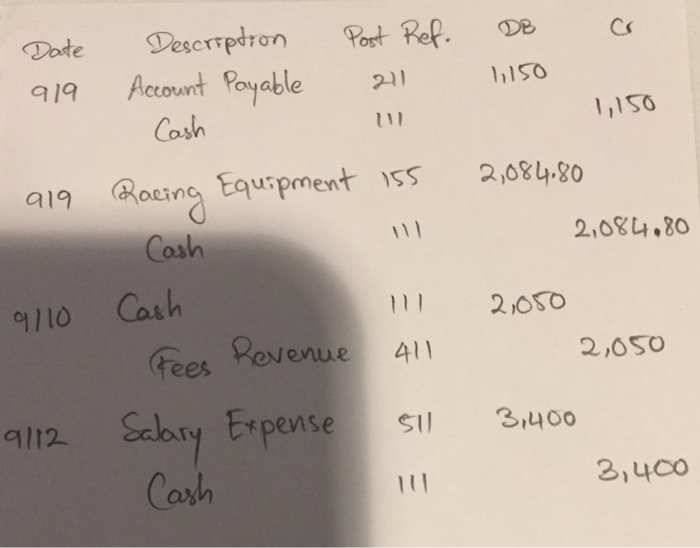 Date Description Post Ref. DB Cr
9/9 Account Payable 211 1,150
Cash 111 1,150
9/9 Racing Equipment 155 2,084.80
Cash 111 2,084.80
9/10 Cash 111 2,050
Fees Revenue 411 2,050
9/12 Salary Expense 511 3,400
Cash 111 3,400